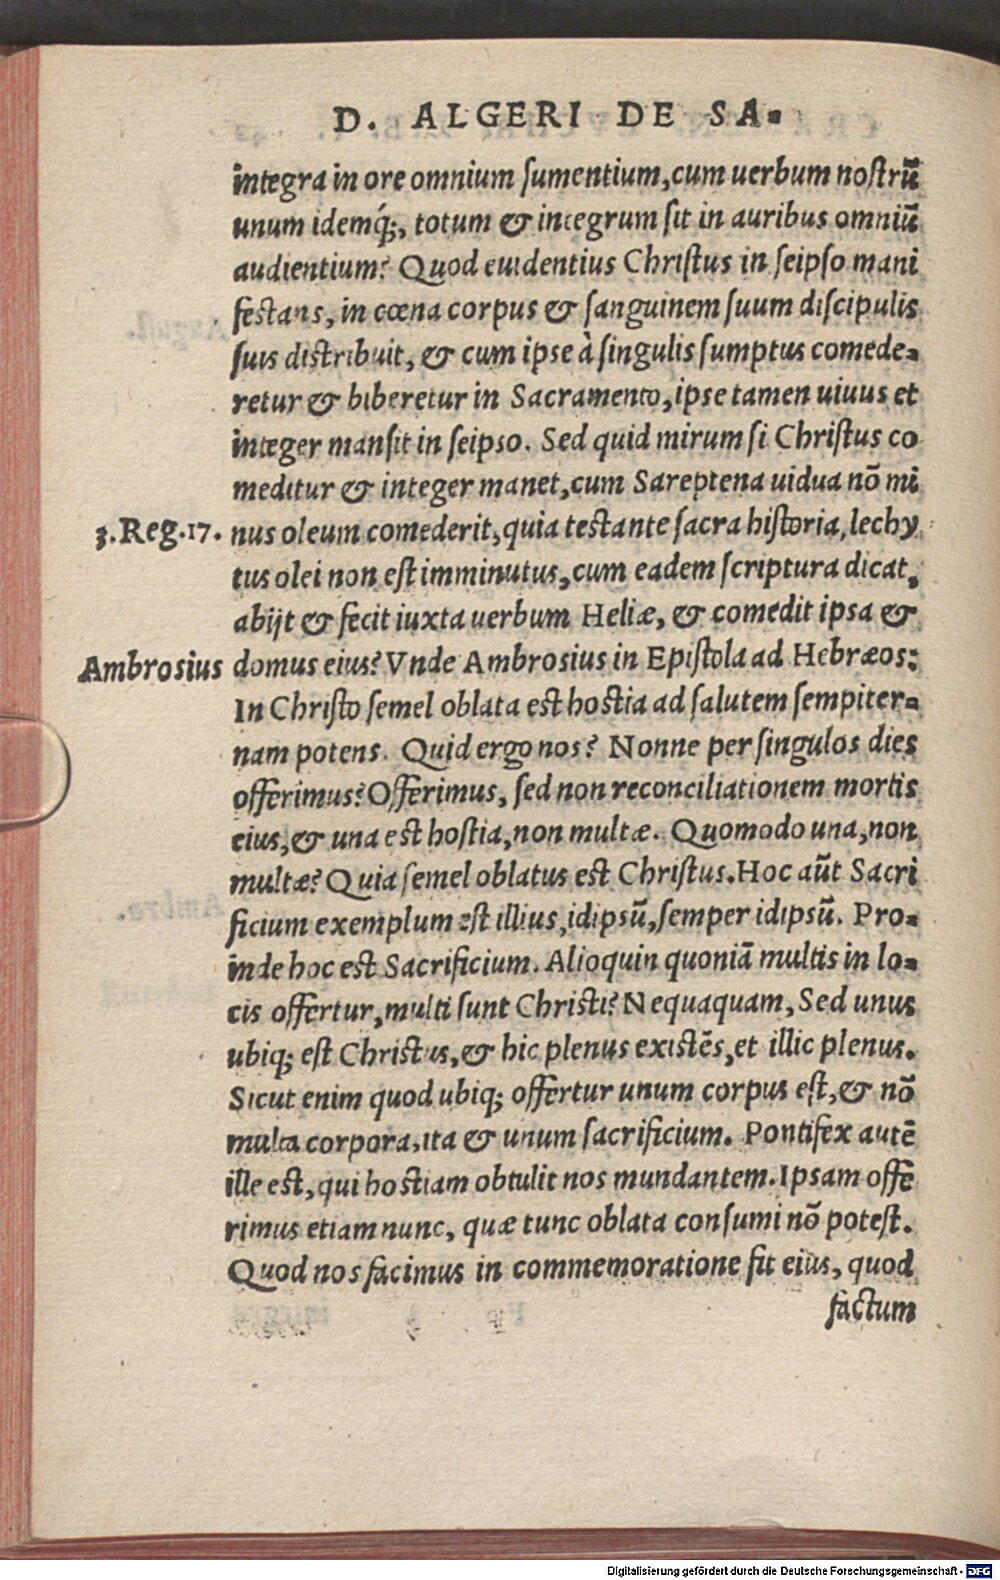 D. ALGERI DE SA-
integra in ore omnium ſumentium, cum uerbum noſtrū
unum idemq́;, totum & integrum ſit in auribus omniū
audientium? Quod euidentius Chriſtus in ſeipſo mani
feſtans, in cœna corpus & ſanguinem ſuum diſcipulis
ſuis diſtribuit, & cum ipſe à ſingulis ſumptus comede-
retur & biberetur in Sacramento, ipſe tamen uiuus et
integer manſit in ſeipſo. Sed quid mirum ſi Chriſtus co
meditur & integer manet, cum Sareptena uidua nō mi
3. Reg. 17. nus oleum comederit, quia teſtante ſacra hiſtoria, lechy
tus olei non eſt imminutus, cum eadem ſcriptura dicat,
abijt & fecit iuxta uerbum Heliæ, & comedit ipſa &
Ambroſius domus eius? Vnde Ambroſius in Epiſtola ad Hebræos:
In Chriſto ſemel oblata eſt hoſtia ad ſalutem ſempiter-
nam potens. Quid ergo nos? Nonne per ſingulos dies
offerimus? Offerimus, ſed non reconciliationem mortis
eius, & una eſt hoſtia, non multæ. Quomodo una, non
multæ? Quia ſemel oblatus eſt Chriſtus. Hoc aūt Sacri
ficium exemplum eſt illius, idipsū, ſemper idipsū. Pro-
inde hoc eſt Sacrificium. Alioquin quoniā multis in lo-
cis offertur, multi ſunt Chriſti? Nequaquam, Sed unus
ubiq; eſt Chriſtus, & hic plenus exiſtēs, et illic plenus.
Sicut enim quod ubiq; offertur unum corpus eſt, & nō
multa corpora, ita & unum ſacrificium. Pontifex autē
ille eſt, qui hoſtiam obtulit nos mundantem. Ipſam offe
rimus etiam nunc, quæ tunc oblata conſumi nō poteſt.
Quod nos facimus in commemoratione fit eius, quod
factum
Digitalisierung gefördert durch die Deutsche Forschungsgemeinschaft - DFG